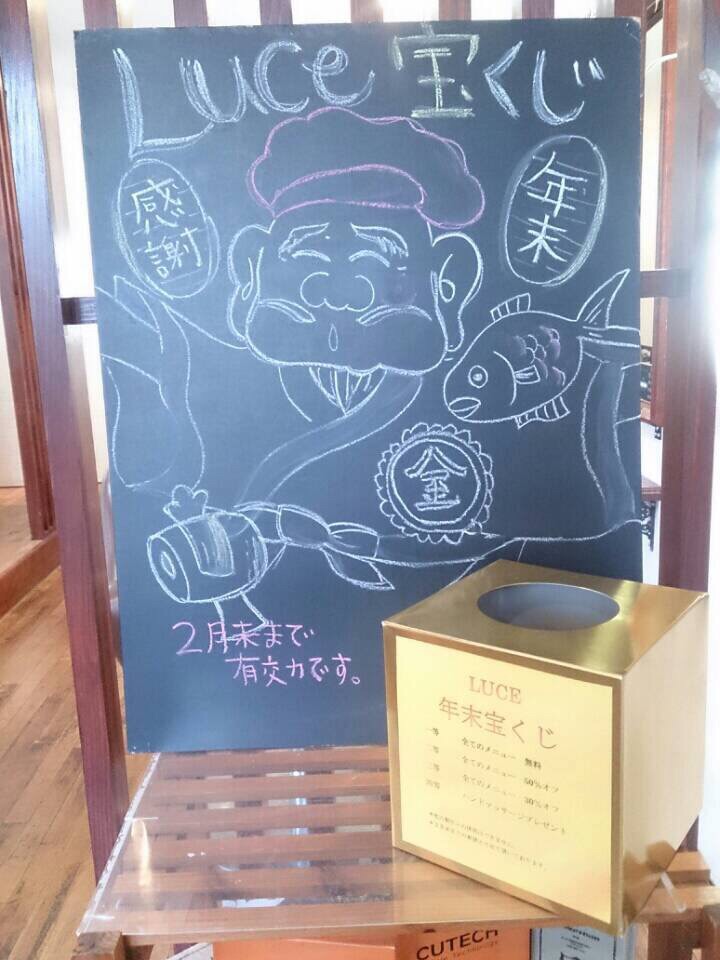 Luce 宝くじ
感謝
年末
金
2月末まで
有効です。
LUCE
年末宝くじ
一等 全てのメニュー 無料
二等 全てのメニュー 50%オフ
三等 全てのメニュー 30%オフ
四等 ハンドマッサージプレゼント
CUTECH